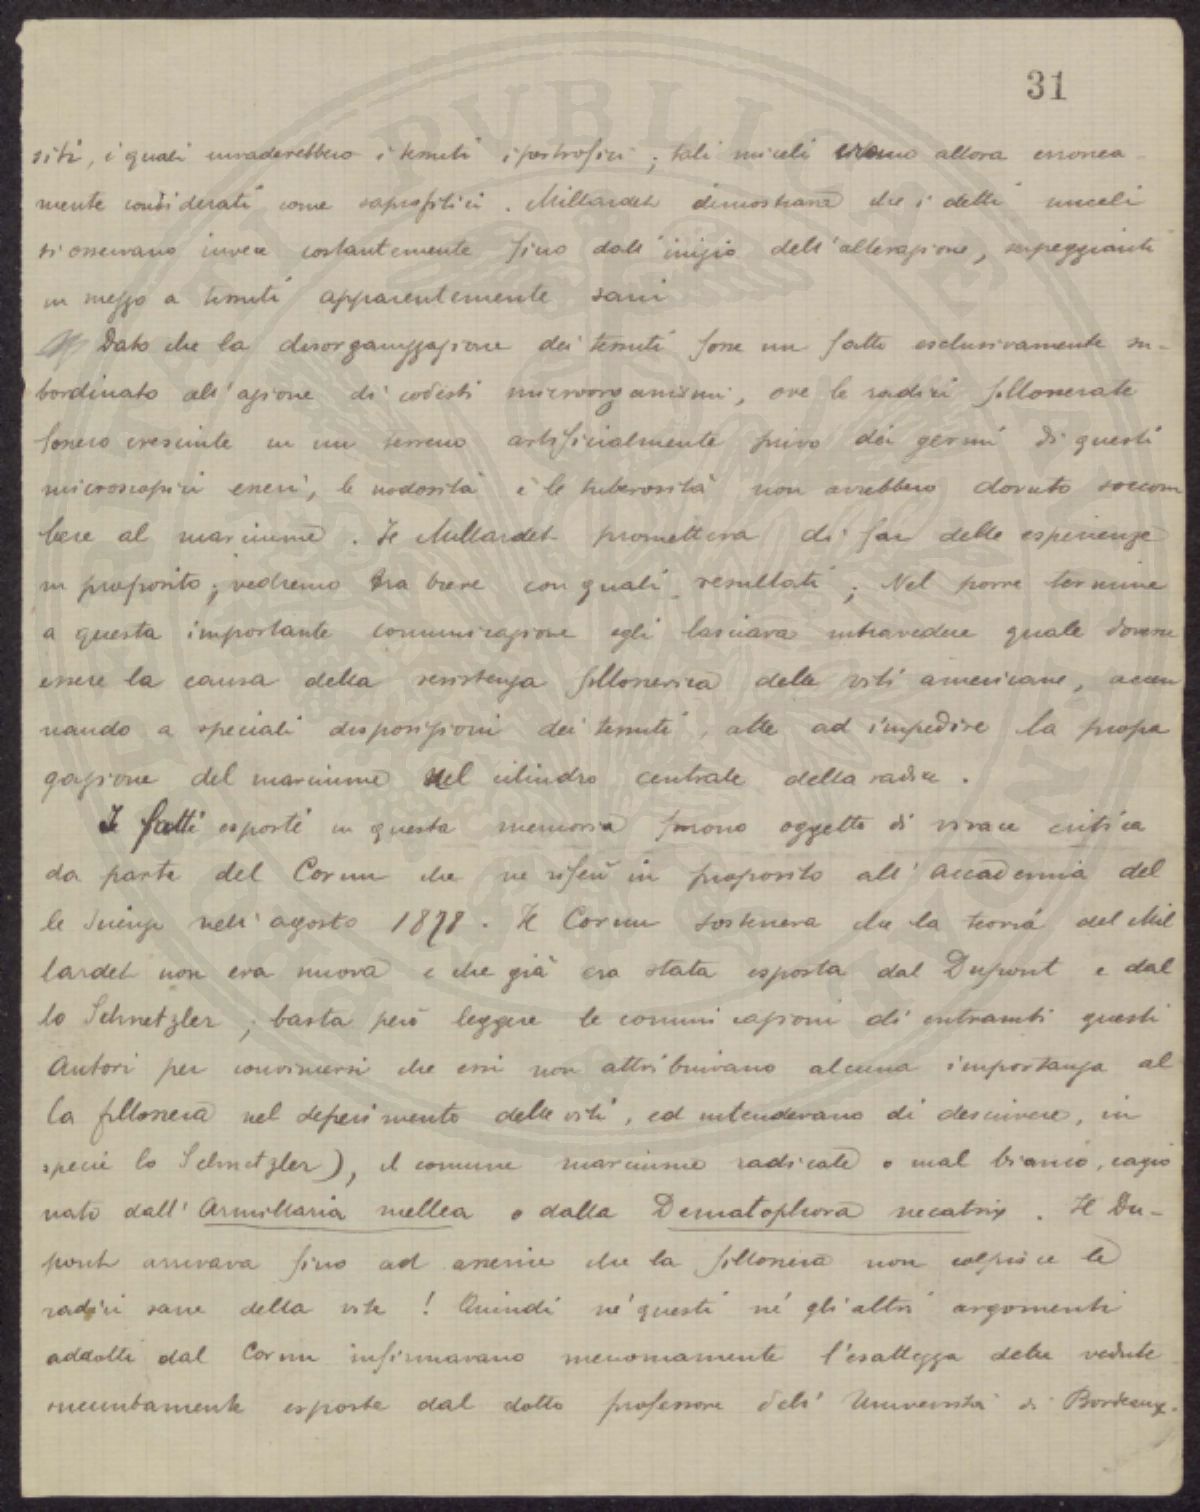 31
siti, i quali invaderebbero i tessuti ipertrofici; tali miceli erano allora erronea-
mente considerati come saprofitici. Millardet dimostrava che i detti miceli
si osservano invece costantemente fino dall'inizio dell'alterazione, serpeggianti
in mezzo a tessuti apparentemente sani
Dato che la disorganizzazione dei tessuti fosse un fatto esclusivamente su-
bordinato all'azione di codesti microorganismi, ove le radici fillosserate
fossero cresciute in un terreno artificialmente privo dei germi di questi
microscopici esseri, le nodosità e le tuberosità non avrebbero dovuto soccom
bere al marciume. Il Millardet prometteva di far delle esperienze
in proposito; vedremo tra breve con quali resultati; Nel porre termine
a questa importante comunicazione egli lasciava intravedere quale dovesse
essere la causa della resistenza fillosserica delle viti americane, accen
nando a speciali disposizioni dei tessuti, atte ad impedire la propa
gazione del marciume nel cilindro centrale della radice.
I fatti esposti in questa memoria furono oggetto di vivace critica
da parte del Cornu che ne riferì in proposito all'Accademia del
le Scienze nell'agosto 1878. Il Cornu sosteneva che la teoria del Mil
lardet non era nuova e che già era stata esposta dal Dupont e dal
lo Schnetzler; basta però leggere le comunicazioni di entrambi questi
Autori per convincersi che essi non attribuivano alcuna importanza al
la fillossera nel deperimento delle viti, ed intendevano di descrivere, in
specie lo Schnetzler), il comune marciume radicale o mal bianco, cagio
nato dall'Armillaria mellea o dalla Dematophora necatrix. Il Du-
pont arrivava fino ad asserire che la fillossera non colpisce le
radici sane della vite! Quindi nè questi nè gli altri argomenti
addotti dal Cornu infirmavano menomamente l'esattezza delle vedute
succintamente esposte dal dotto professore dell'Università di Bordeaux.
PVBLIC